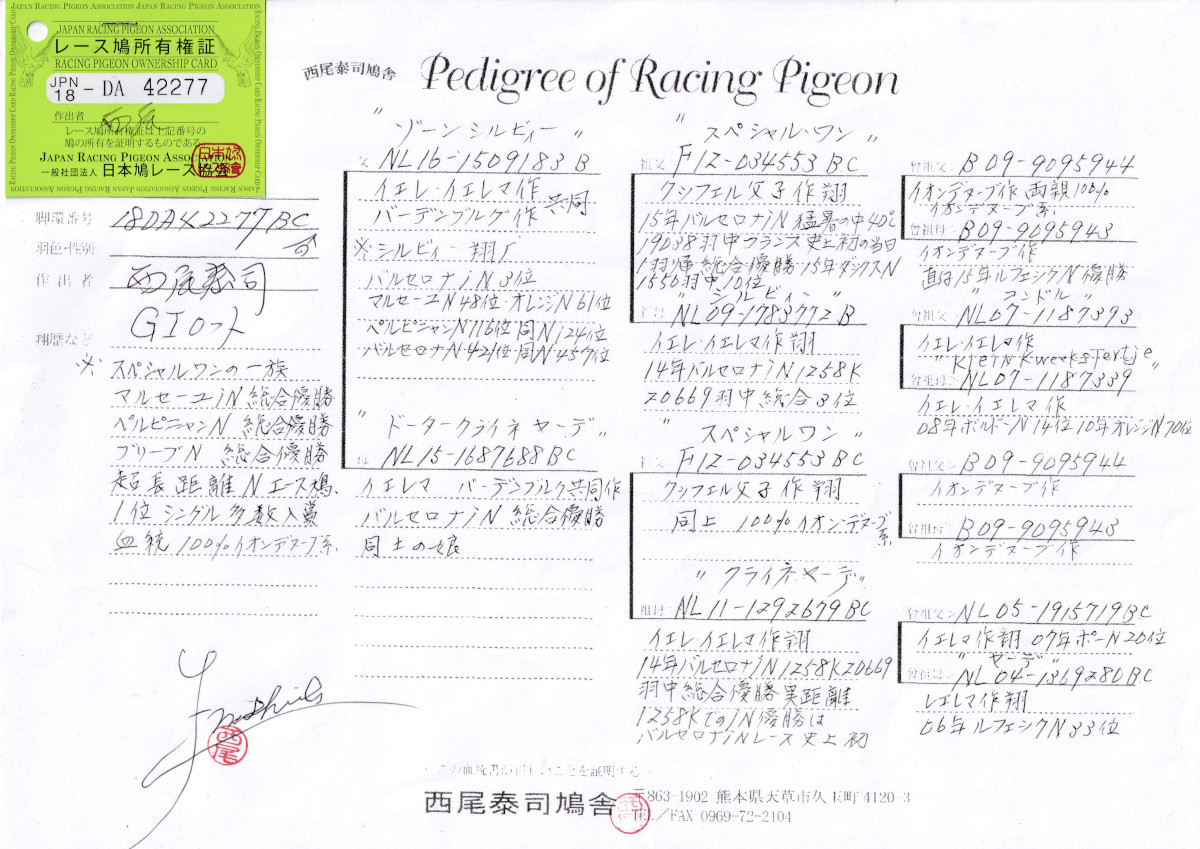 JAPAN RACING PIGEON ASSOCIATION
レース鳩所有権証
RACING PIGEON OWNERSHIP CARD
JPN
18 - DA 42277
作出者
レース鳩所有権証は上記番号の
鳩の所有を証明するものである
JAPAN RACING PIGEON ASSOCIATION
一般社団法人 日本鳩レース協会
西尾泰司鳩舎 Pedigree of Racing Pigeon
脚環番号 18DA42277BC
羽色・性別 ♂
作出者 西尾泰司
GIロット
翔歴など
※ スペシャルワンの一族
マルセーユiN 総合優勝
ペルピニャンN 総合優勝
ブリーブN 総合優勝
超長距離Nエース鳩、
1位 シングル多数入賞
血統 100%イオンデヌーブ系、
"ゾーンシルビィー"
父 NL16-1509183 B
イエレ・イエレマ作
バーデンブルグ作 共同
※シルビィー 翔歴
バルセロナiN 3位
マルセーユN 48位・オレンジN 61位
ペルピニャンN 116位 同N 124位
バルセロナN 421位・同N 457位
"ドータークライネヤーデ"
母 NL15-1687688BC
イエレマ バーデンブルク共同作
バルセロナiN 総合優勝
同士の娘
"スペシャル・ワン"
祖父 F12-034553 BC
クシフェル父子作翔
15年バルセロナiN 猛暑の中40℃
19038羽中フランス史上初の当日
1羽帰 総合優勝・15年ダックスN
1550羽中10位
"シルビィー"
祖母 NL09-1783772 B
イエレ・イエレマ作翔
14年バルセロナiN 1258K
20669羽中総合3位
"スペシャルワン"
祖父 F12-034553 BC
クシフェル父子作翔
同上 100%イオンデヌーブ系
"クライネヤーデ"
祖母 NL11-1292679 BC
イエレ・イエレマ作翔
14年バルセロナiN 1258K20669
羽中総合優勝 実距離
1258KでのiN優勝は
バルセロナiNレース史上初
曾祖父 B09-9095944
イオンデヌーブ作 両親100%
イオンデヌーブ系
曾祖母 B09-9095943
イオンデヌーブ作
直仔15年ルフェンクN優勝
"コンドル"
曾祖父 NL07-1187393
イエレ・イエレマ作
"Klein Kweeksfertje"
曾祖母 NL07-1187339
イエレ・イエレマ作
08年ボルドーN 14位 10年オレンジN 70位
曾祖父 B09-9095944
イオンデヌーブ作
曾祖母 B09-9095943
イオンデヌーブ作
曾祖父 NL05-1915719BC
イエレマ作翔 07年ポーN 20位
"ヤーデ"
曾祖母 NL04-1369280BC
イエレマ作翔
06年ルフェンクN 33位
西尾
この血統書が正しいことを証明する
西尾泰司鳩舎
〒863-1902 熊本県天草市久玉町4120-3
TEL/FAX 0969-72-2104